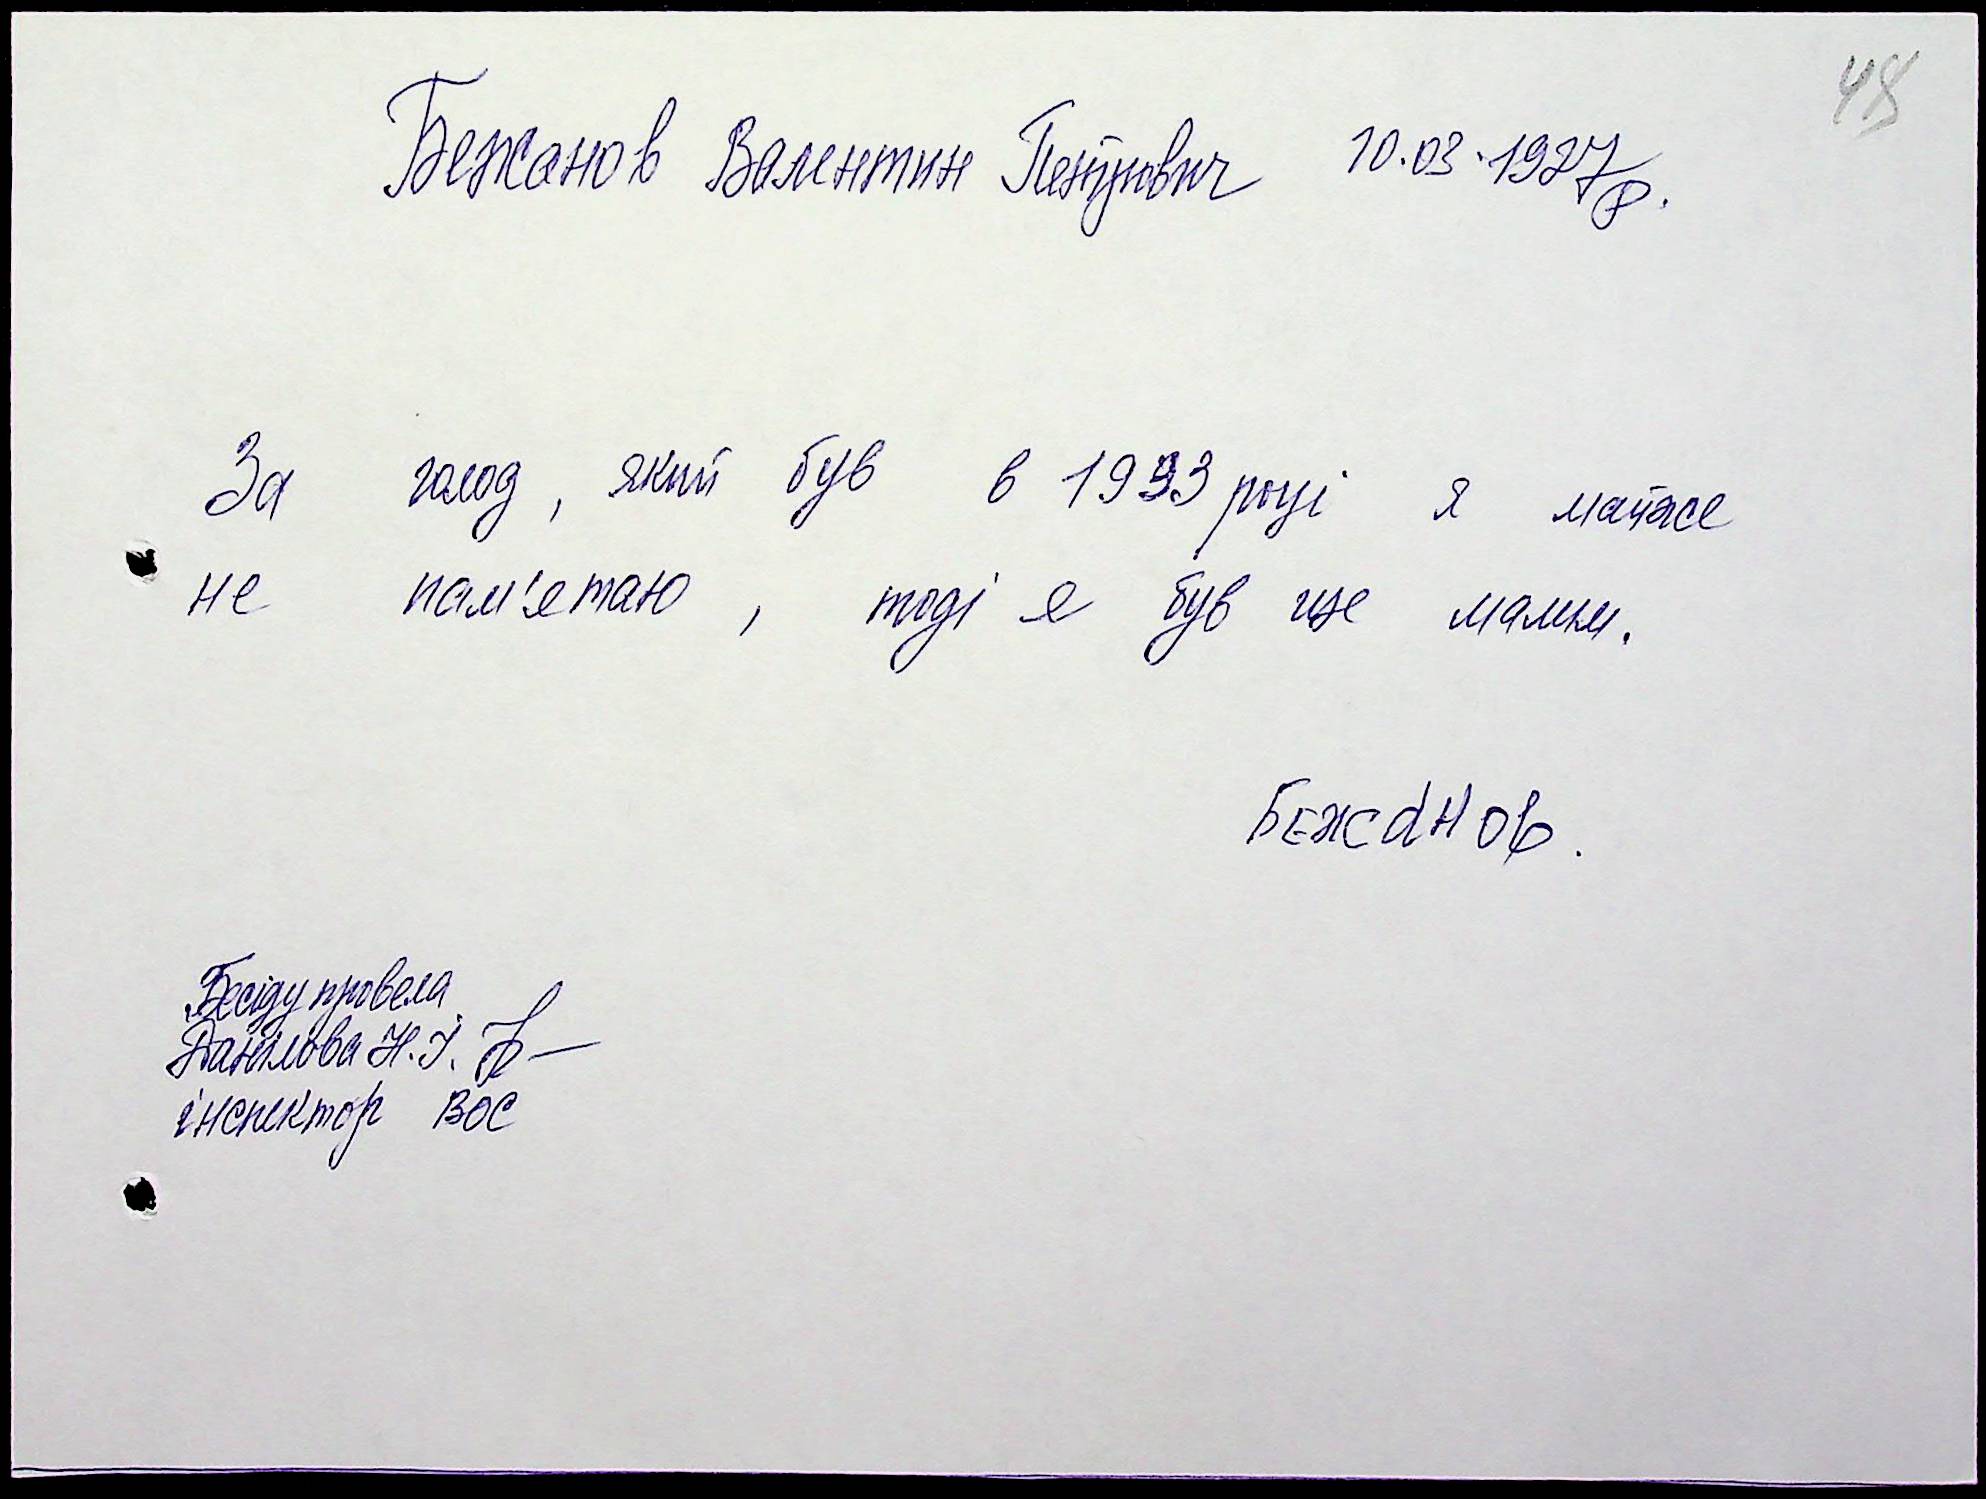 48
Бежанов Валентин Петрович 10.03.1927р.
За голод, який був в 1933 році я майже
не пам'ятаю, тоді я був ще малим.
Бежанов.
Бесіду провела
Данілова Н.І.
інспектор ВОС